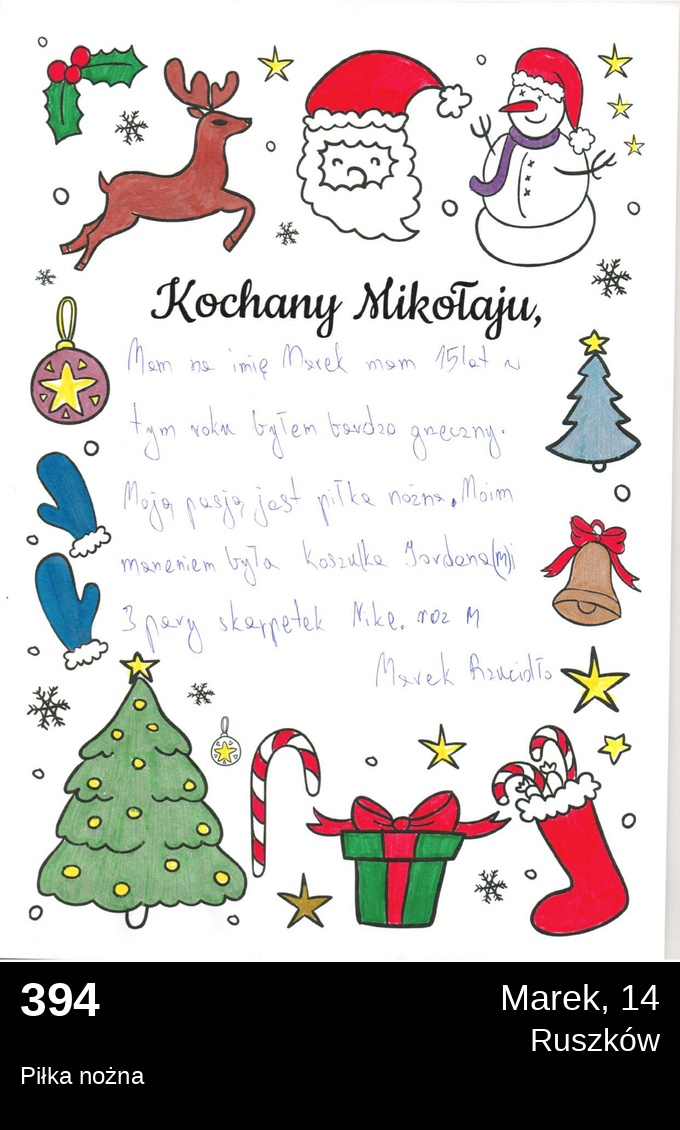 Kochany Mikołaju,
Mam na imię Marek mam 15 lat w
tym roku byłem bardzo grzeczny.
Moją pasją jest piłka nożna. Moim
marzeniem była koszulka Jordana(M)i
3 pary skarpetek Nike. roz M
Marek Rzucidło
394
Marek, 14
Ruszków
Piłka nożna